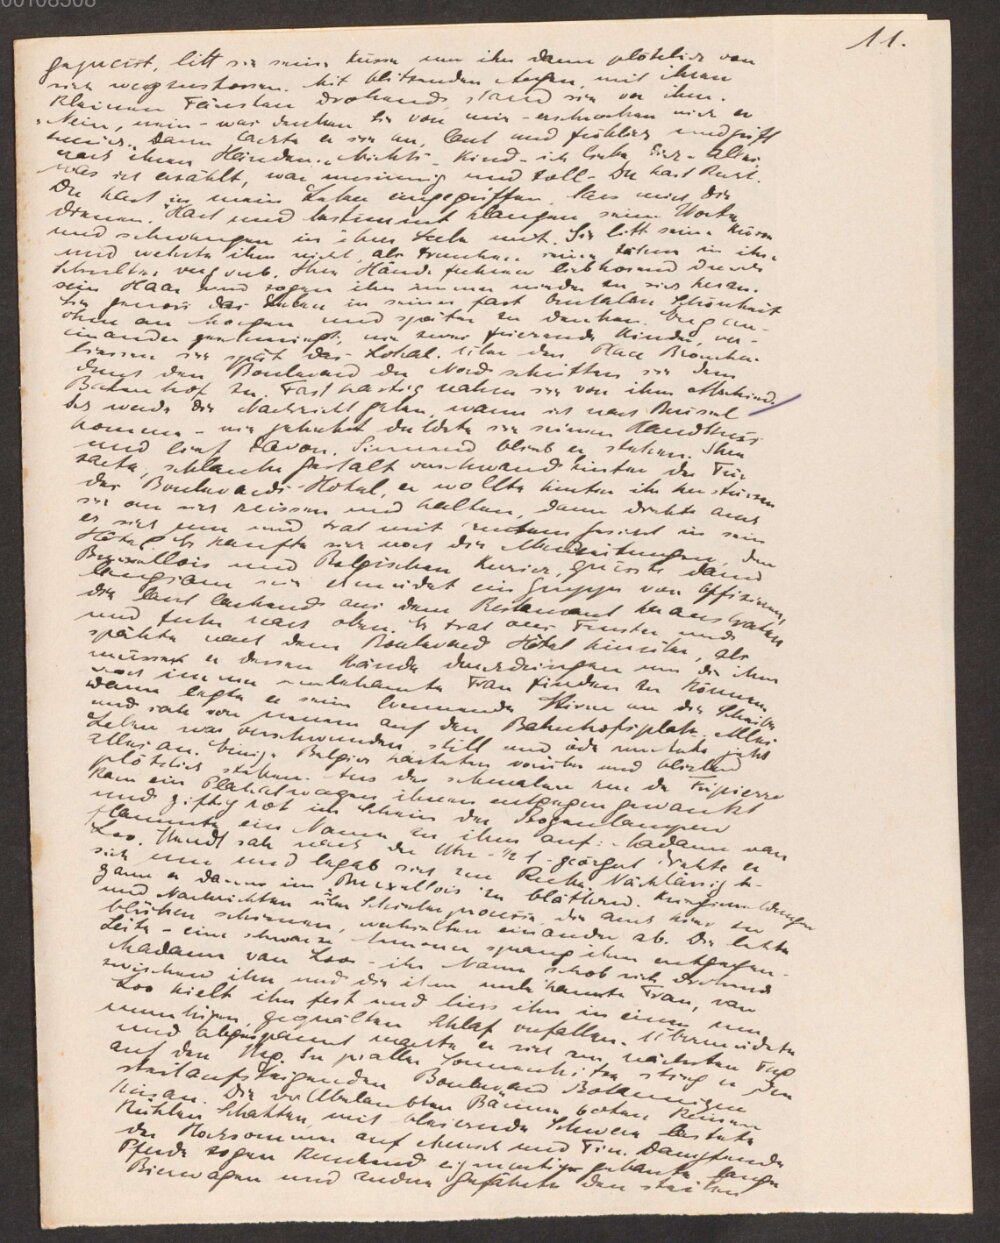 00108508
11.
gepreist, litt sie seine Küsse um ihn dann plötzlich von
sich wegzustossen. Mit blitzenden Augen, mit ihren
kleinen Fäusten drohend, stand sie vor ihm.
"Nein, nein – was denken Sie von mir – erschrocken wich er
zurück. Dann lachte er sie an, laut und fröhlich und griff
nach ihren Händen. "Nichts – Kind – ich liebe Dich – alles,
was ich erzählt, war unsinnig und toll – Du hast Kurt.
Du hast in mein Leben eingegriffen, lass mich Dir
dienen." Hart und bestimmt klangen seine Worte
und schwangen in ihrer Seele mit. Sie litt seine Küsse
und wehrte ihm nicht, als seine Zähne in ihre
Schulter vergrub. Ihre Hände fuhren liebkosend durch
sein Haar und zogen ihn immer wieder zu sich heran.
Sie genoss das Leben in seiner fast brutalen Schönheit
ohne an Morgen und später zu denken. Eng an-
einander geschmiegt, wie zwei frierende Kinder, ver-
liessen sie spät das Lokal. Über den Place Brouckère
durch den Boulevard du Nord schritten sie dem
Bahnhof zu. Fast hastig nahm sie von ihm Abschied.
Ich werde Dir Nachricht geben, wann ich nach Brüssel
komme – wie gehetzt duldete sie seinen Handkuss
und lief davon. Sinnend blieb er stehen. Ihre
zarte, schlanke Gestalt verschwand hinter der Tür
des Boulevard-Hotel, er wollte hinter ihr her stürzen
sie an sich reissen und halten, dann drehte auch
er sich um und trat mit ernstem Gesicht in sein
Hôtel. Er kaufte sich noch die Abendzeitungen, den
Bruxellois und Belgischen Kurier, grüsste dann
langsam wie ermüdet eine Gruppe von Offizieren,
die laut lachend aus dem Restaurant heraustraten
und fuhr nach oben. Er trat ans Fenster und
spähte nach dem Boulevard Hôtel hinüber, als
müsste er dessen Wände durchdringen um die ihm
noch immer unbekannte Frau finden zu können,
dann legte er seine brennende Stirn an die Scheibe
und sah von neuem auf den Bahnhofsplatz. Alles
Leben war verschwunden, still und öde mutete jetzt
alles an. Einige Belgier hasteten vorüber und blieben
plötzlich stehen. Aus der schmalen rue du Fripierre
kam ein Plakatwagen ihnen entgegen gewankt
und giftig rot im Schein der Bogenlampen
flammte ein Name zu ihm auf: – Madame van
Loo. Wendt sah nach der Uhr – ½ 1 – zögernd drehte er
sich um und begab sich zur Ruhe. Nachlässig be-
gann er dann im Bruxellois zu blättern. Kriegsmeldungen
und Nachrichten über Schieberprozesse, die auch hier zu
blühen schienen, wechselten einander ab. Die letzte
Seite – eine schwarze Annonce sprang ihm entgegen –
Madame van Loo – ihr Name schob sich drohend
zwischen ihn und die ihm unbekannte Frau, van
Loo hielt ihn fest und liess ihn in einen un-
ruhigen, gequälten Schlaf verfallen. Übermüdet
und abgespannt machte er sich am nächsten Tag
auf den Weg. In praller Sonnenhitze stieg er den
steilaufsteigenden Boulevard Botanique
hinan. Die vollbelaubten Bäume boten keinen
kühlen Schatten, mit bleierner Schwere lastete
der Hochsommer auf Mensch und Tier. Dampfende
Pferde zogen keuchend eigenartig gebaute lange
Bierwagen und andere Gefährte den steilen